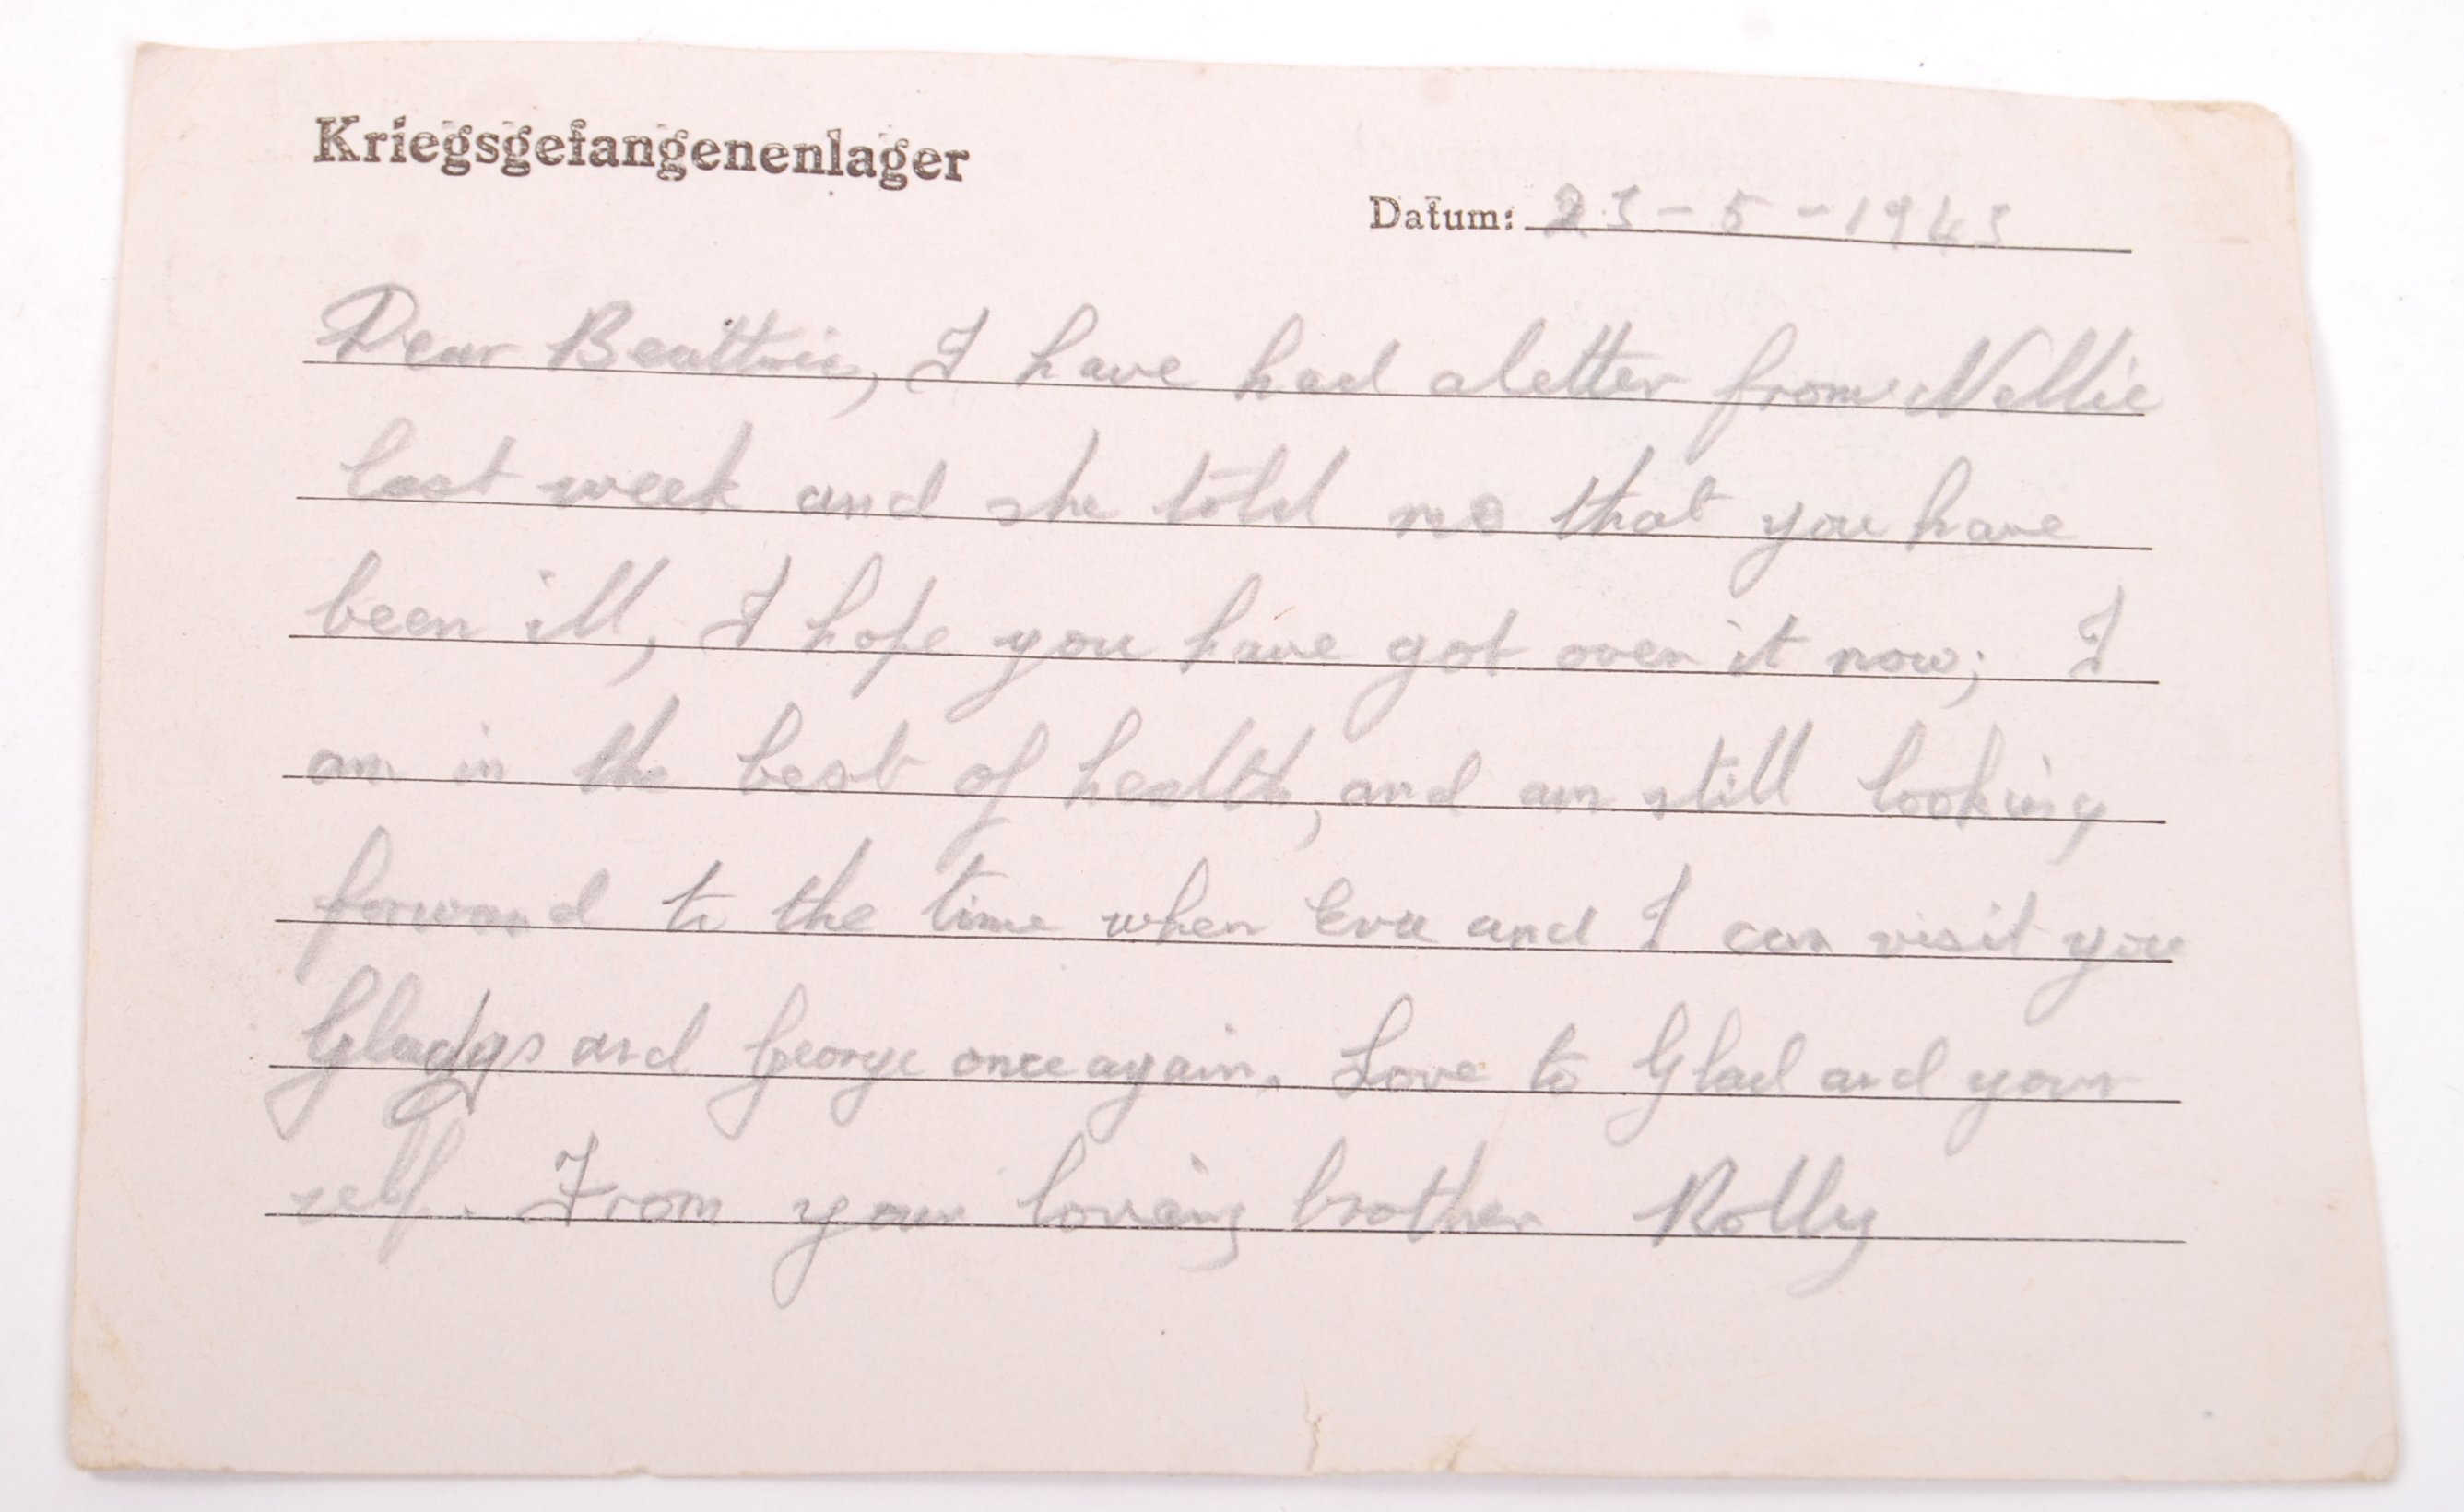 Kriegsgefangenenlager
Datum: 23-5-1943
Dear Beattrice, I have had a letter from Nellie
last week and she told me that you have
been ill, I hope you have got over it now; I
am in the best of health, and am still looking
forward to the time when Eva and I can visit you
Gladys and George once again. Love to Glad and your
self. From your loving brother Rolly